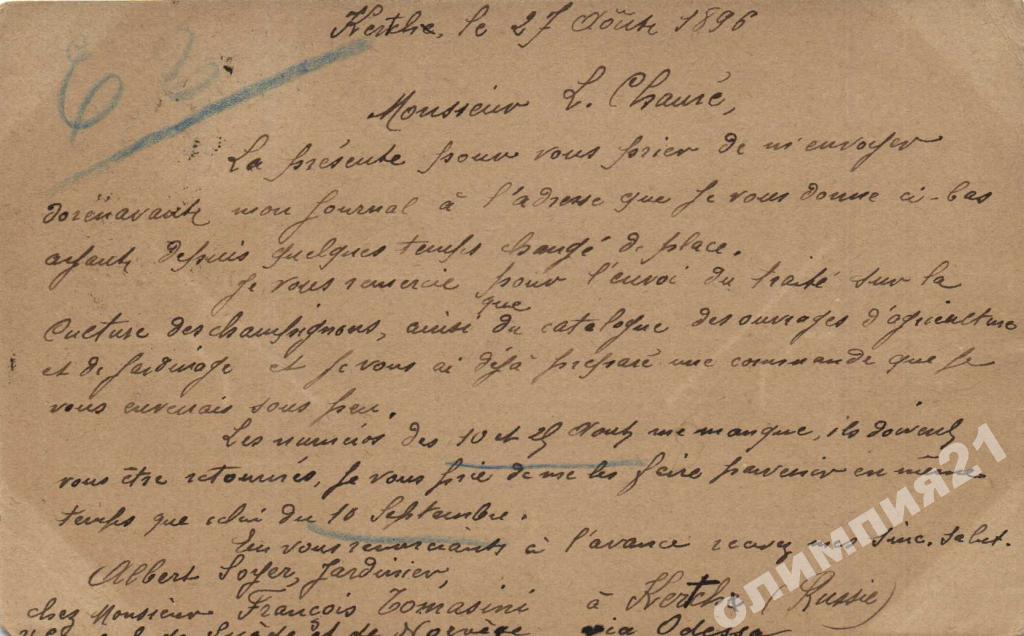 Kertche, le 27 Août 1896
Monsieur L. Chauré,
La présente pour vous prier de m'envoyer
dorénavant mon journal à l'adresse que je vous donne ci-bas
ayant depuis quelques temps changé de place.
Je vous remercie pour l'envoi du traité sur la
culture des champignons, ainsi que du catalogue des ouvrages d'agriculture
et de jardinage et je vous ai déjà préparé une commande que je
vous enverrais sous peu.
Les numéros des 10 et 25 Aout me manque, ils doivent
vous être retournés, je vous prie de me les faire parvenir en même
temps que celui du 10 Septembre.
En vous remerciant à l'avance recevez mes sinc. salut.
Albert Soyer, jardinier,
chez Monsieur François Tomasini à Kertche (Russie)
de Suède et de Norvège via Odessa
олимпия21